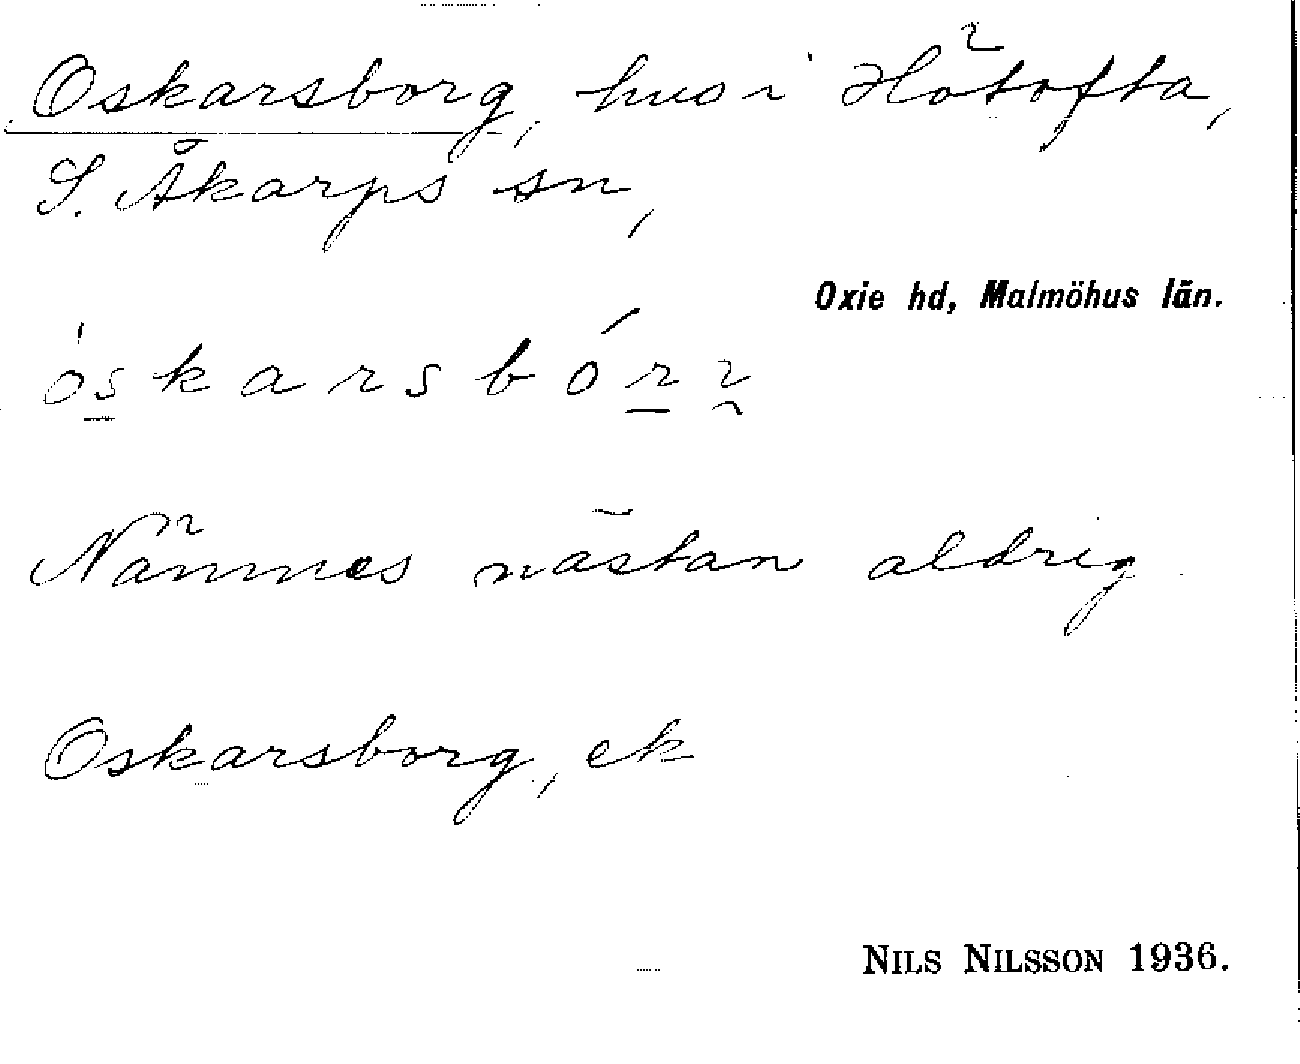 Oskarsborg, hus i Hötofta,
S. Åkarps sn,
Oxie hd, Malmöhus län.
óskarsbórr
Nämnes nästan aldrig
Oskarsborg, ek
NILS NILSSON 1936.